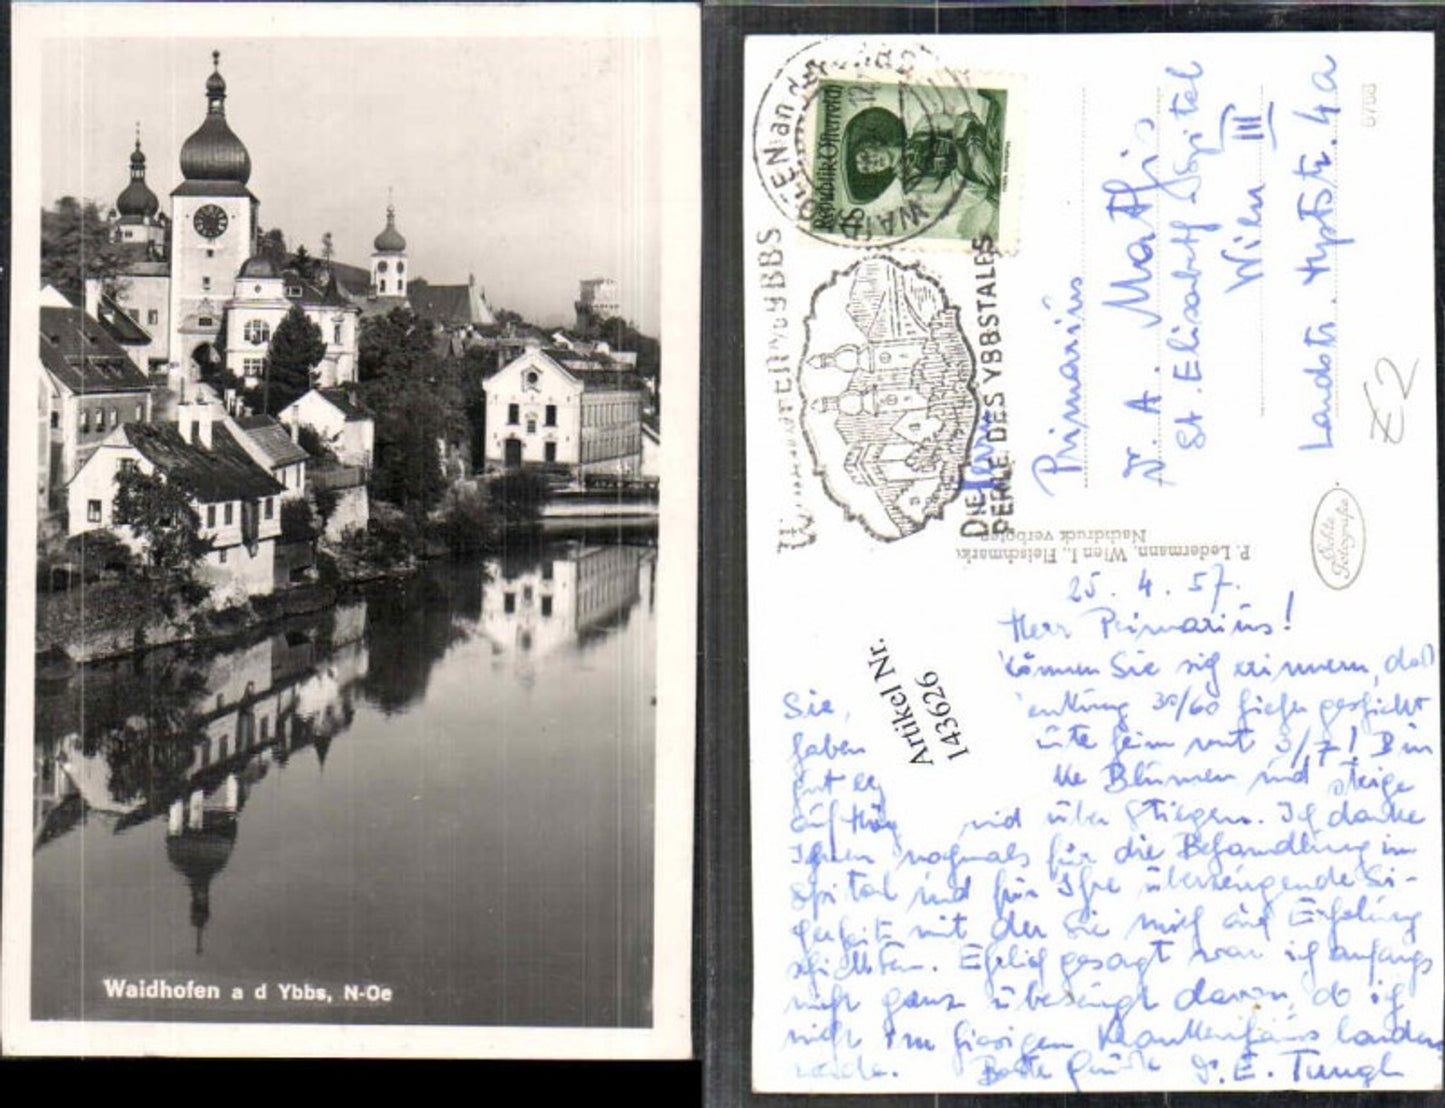 Waidhofen a d Ybbs, N-Oe
Republik Österreich
DIE
PERLE DES YBBSTALES
Primarius
Dr. A. Mathis
St. Elisabeth Spital
Wien III
Landstr. Hptstr. 4a
E2
P. Ledermann, Wien I., Fleischmarkt
Nachdruck verboten
Echte
Fotografie
Artikel Nr.
143626
25. 4. 57.
Herr Primarius!
können Sie sich erinnern, daß
Sie, 30/60 hiehergeschickt
haben heim mit 3/7! Bin
gut Blumen und steige
und über Stiegen. Ich danke
Ihnen nochmals für die Behandlung im
Spital und für Ihre überzeugende Si-
cherheit mit der Sie mich auf Erholung
schickten. Ehrlich gesagt war ich anfangs
nicht ganz überzeugt davon, ob ich
nicht im hiesigen Krankenhaus landen
werde. Beste Grüße Dr. E. Tungl